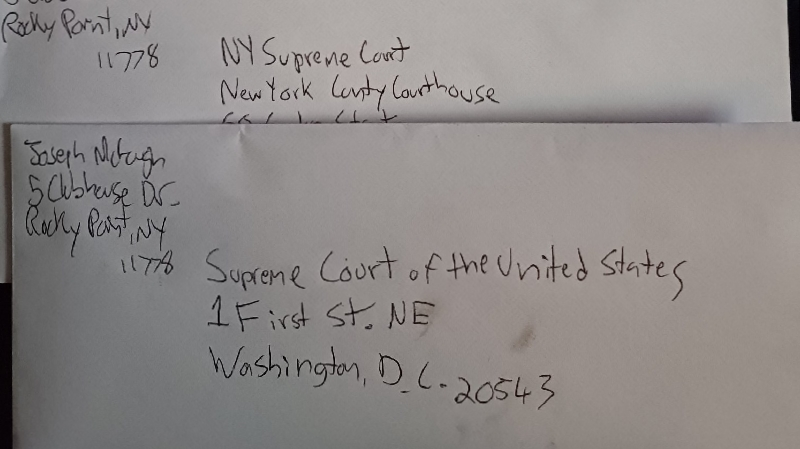 Rocky Point, NY
11778
NY Supreme Court
New York County Courthouse
Joseph
5 Clubhouse Dr.
Rocky Point, NY
11778
Supreme Court of the United States
1 First St. NE
Washington, D.C. 20543